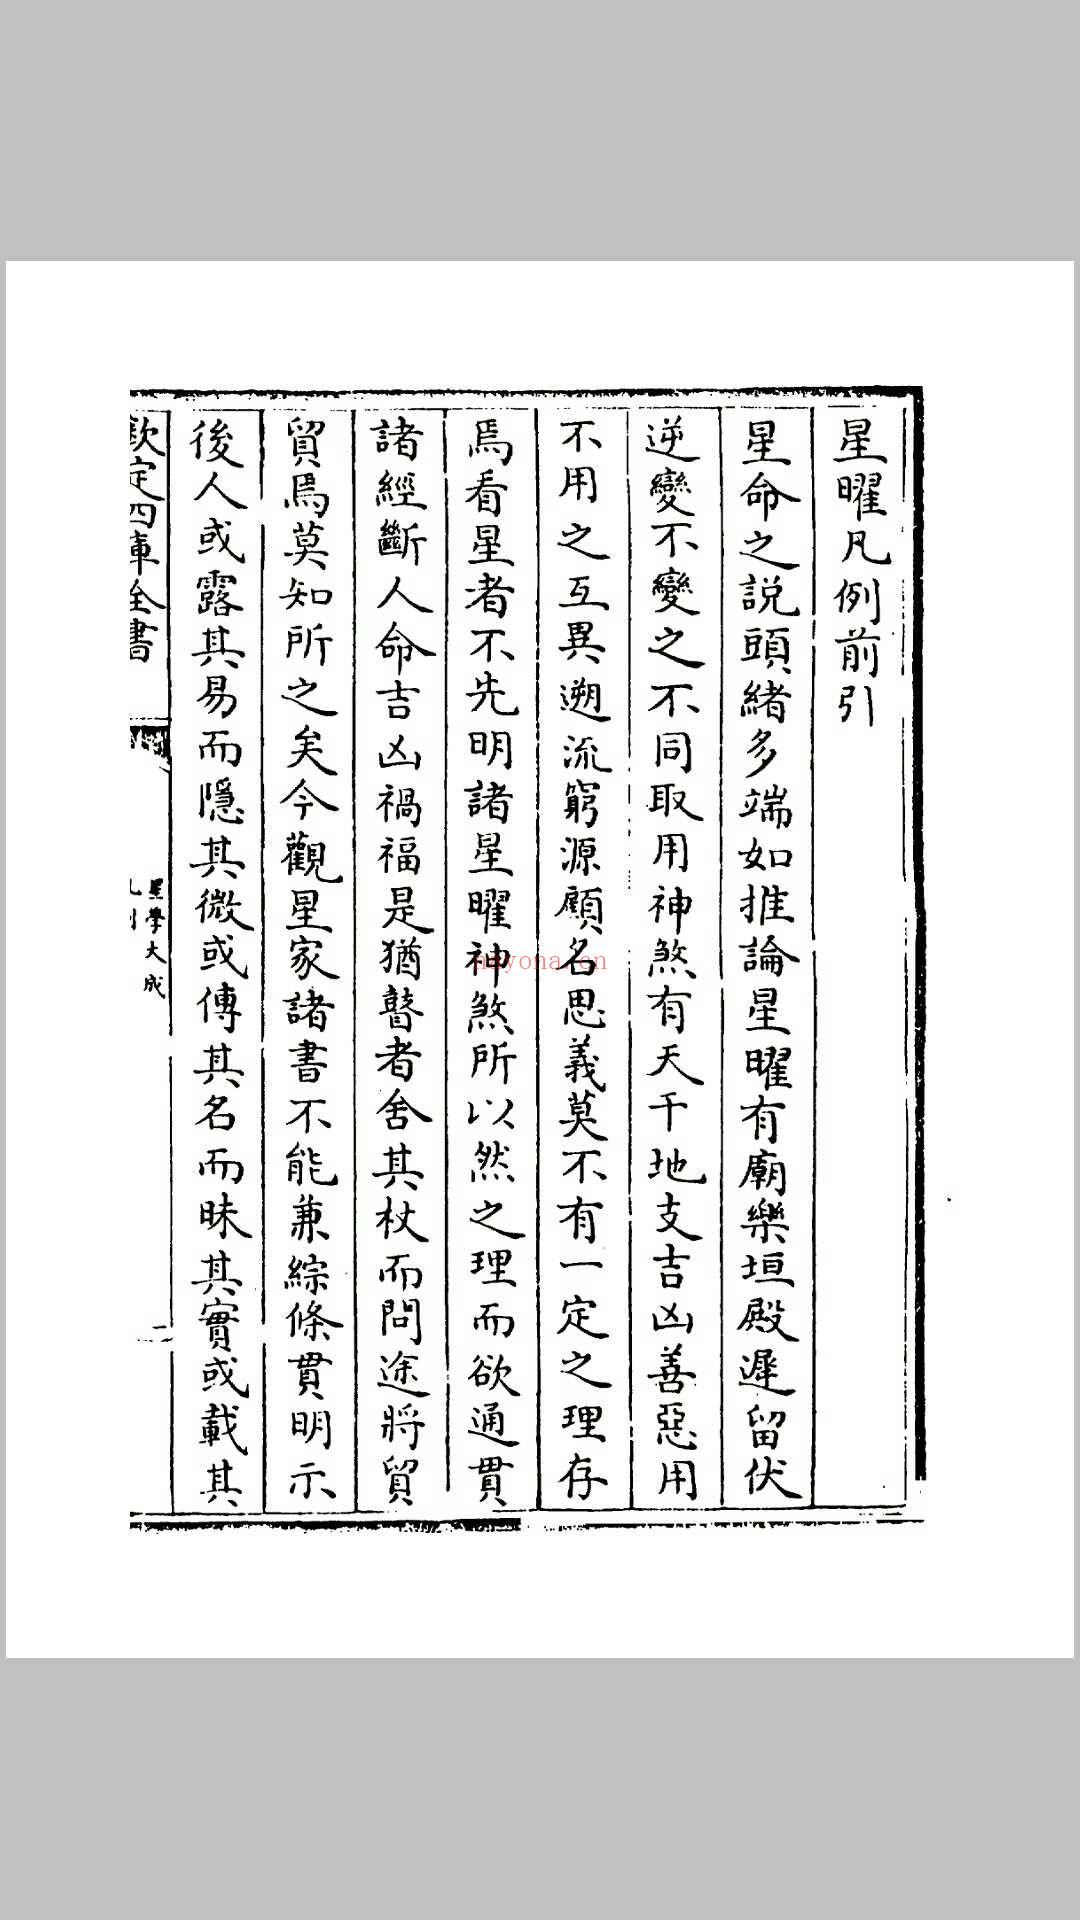 星曜凡例前引
星命之説頭緒多端如推論星曜有廟樂垣殿遲留伏
逆變不變之不同取用神煞有天干地支吉凶善惡用
不用之互異遡流窮源顧名思義莫不有一定之理存
焉看星者不先明諸星曜神煞所以然之理而欲通貫
諸經斷人命吉凶禍福是猶瞽者舍其杖而問途將貿
貿焉莫知所之矣今觀星家諸書不能兼綜條貫明示
後人或露其易而隱其微或傳其名而昧其實或載其
欽定四庫全書
星學大成
凡例
二
nayona.cn